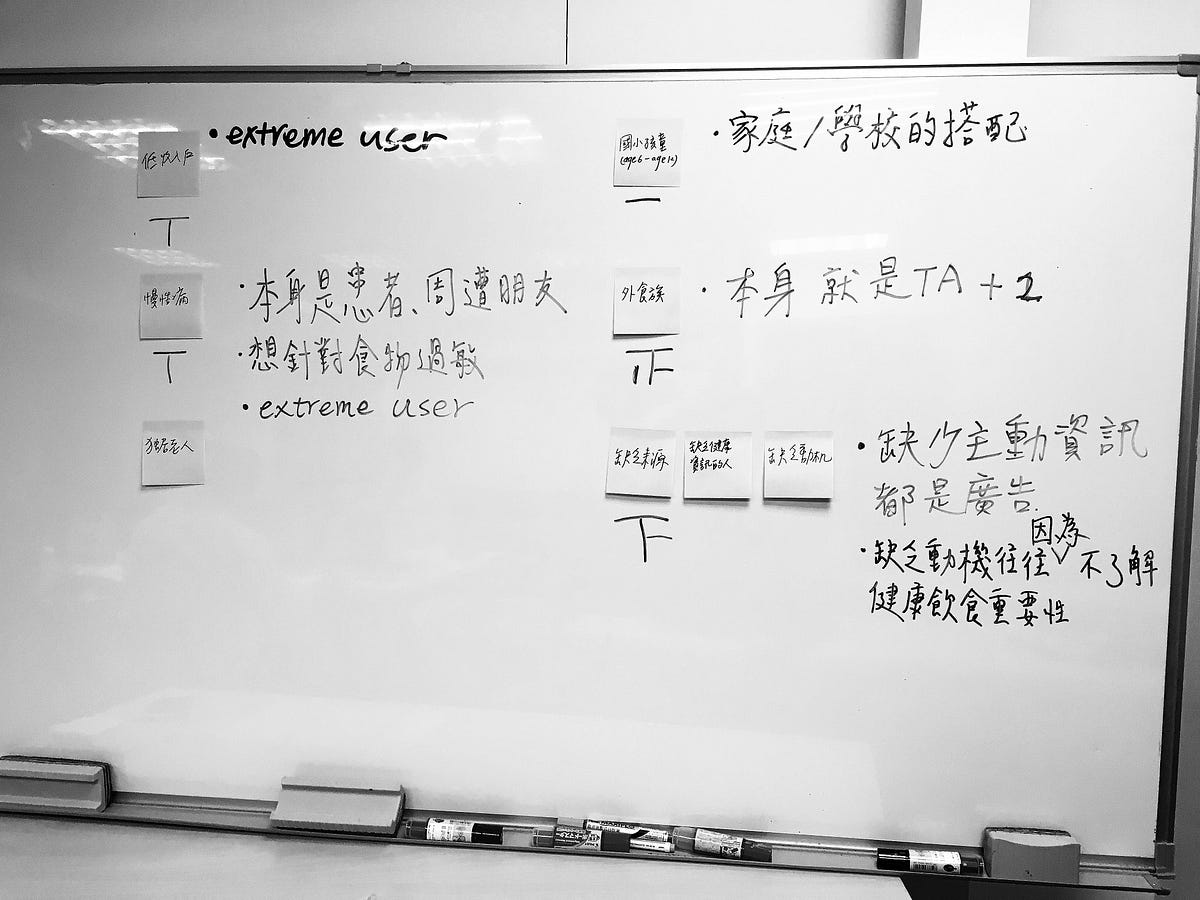 低收入戶
• extreme user
慢性病
• 本身是患者、周遭朋友
• 想針對食物過敏
• extreme user
獨居老人
國小孩童
(age6-age12)
• 家庭/學校的搭配
外食族
• 本身 就是TA +1
缺乏來源
缺乏健康
資訊的人
缺乏動機
• 缺少主動資訊
都是廣告.
• 缺乏動機往往因為不了解
健康飲食重要性